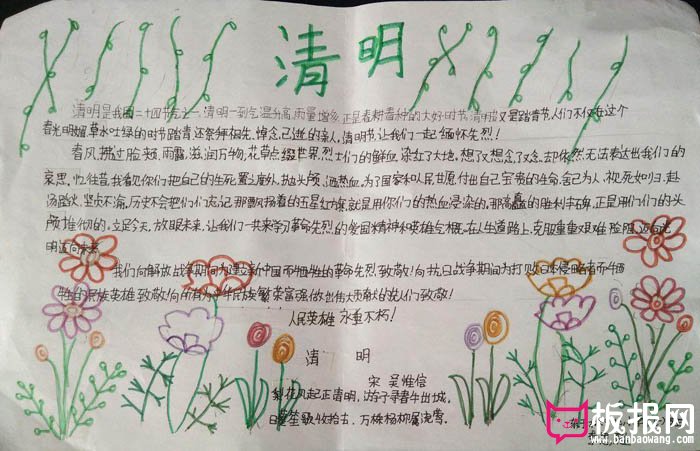 清明
清明是我国二十四节气之一，清明一到气温升高，雨量增多，正是春耕春种的大好时节，清明节又是踏青节，人们不仅在这个
春光明媚，草木吐绿的时节踏青还祭拜祖先，悼念已逝的亲人，清明节，让我们一起缅怀先烈！
春风，拂过脸颊，雨露，滋润万物，花草点缀世界。烈士们的鲜血，染红了大地，想了又想，念了又念，却依然无法表达出我们的
哀思，忆往昔，我看见你们把自己的生死置之度外，抛头颅，洒热血，为了国家和人民甘愿付出自己宝贵的生命，舍己为人，视死如归，赴
汤蹈火，坚贞不渝，历史不会把们们忘记，那飘扬着的五星红旗，就是用你们的热血浸染的，那高矗的胜利丰碑，正是用们们的头
颅堆彻的，立足今天，放眼未来，让我们一共来学习革命先烈的爱国精神和英雄气概，在人生道路上，克服重重艰难险阻，迈向光
明迈向未来
我们向解放战争期间为建立新中国而牺牲的革命先烈致敬！向抗日战争期间为打败日本侵略者而牺
牲的民族英雄致敬！向所有为中华民族繁荣富强做出伟大贡献的先人们致敬！
人民英雄永垂不朽！
清 明
宋 吴惟信
梨花风起正清明，游子寻春半出城，
日暮笙歌收拾去，万株杨柳属流莺。
板报网
www.banbaowang.com